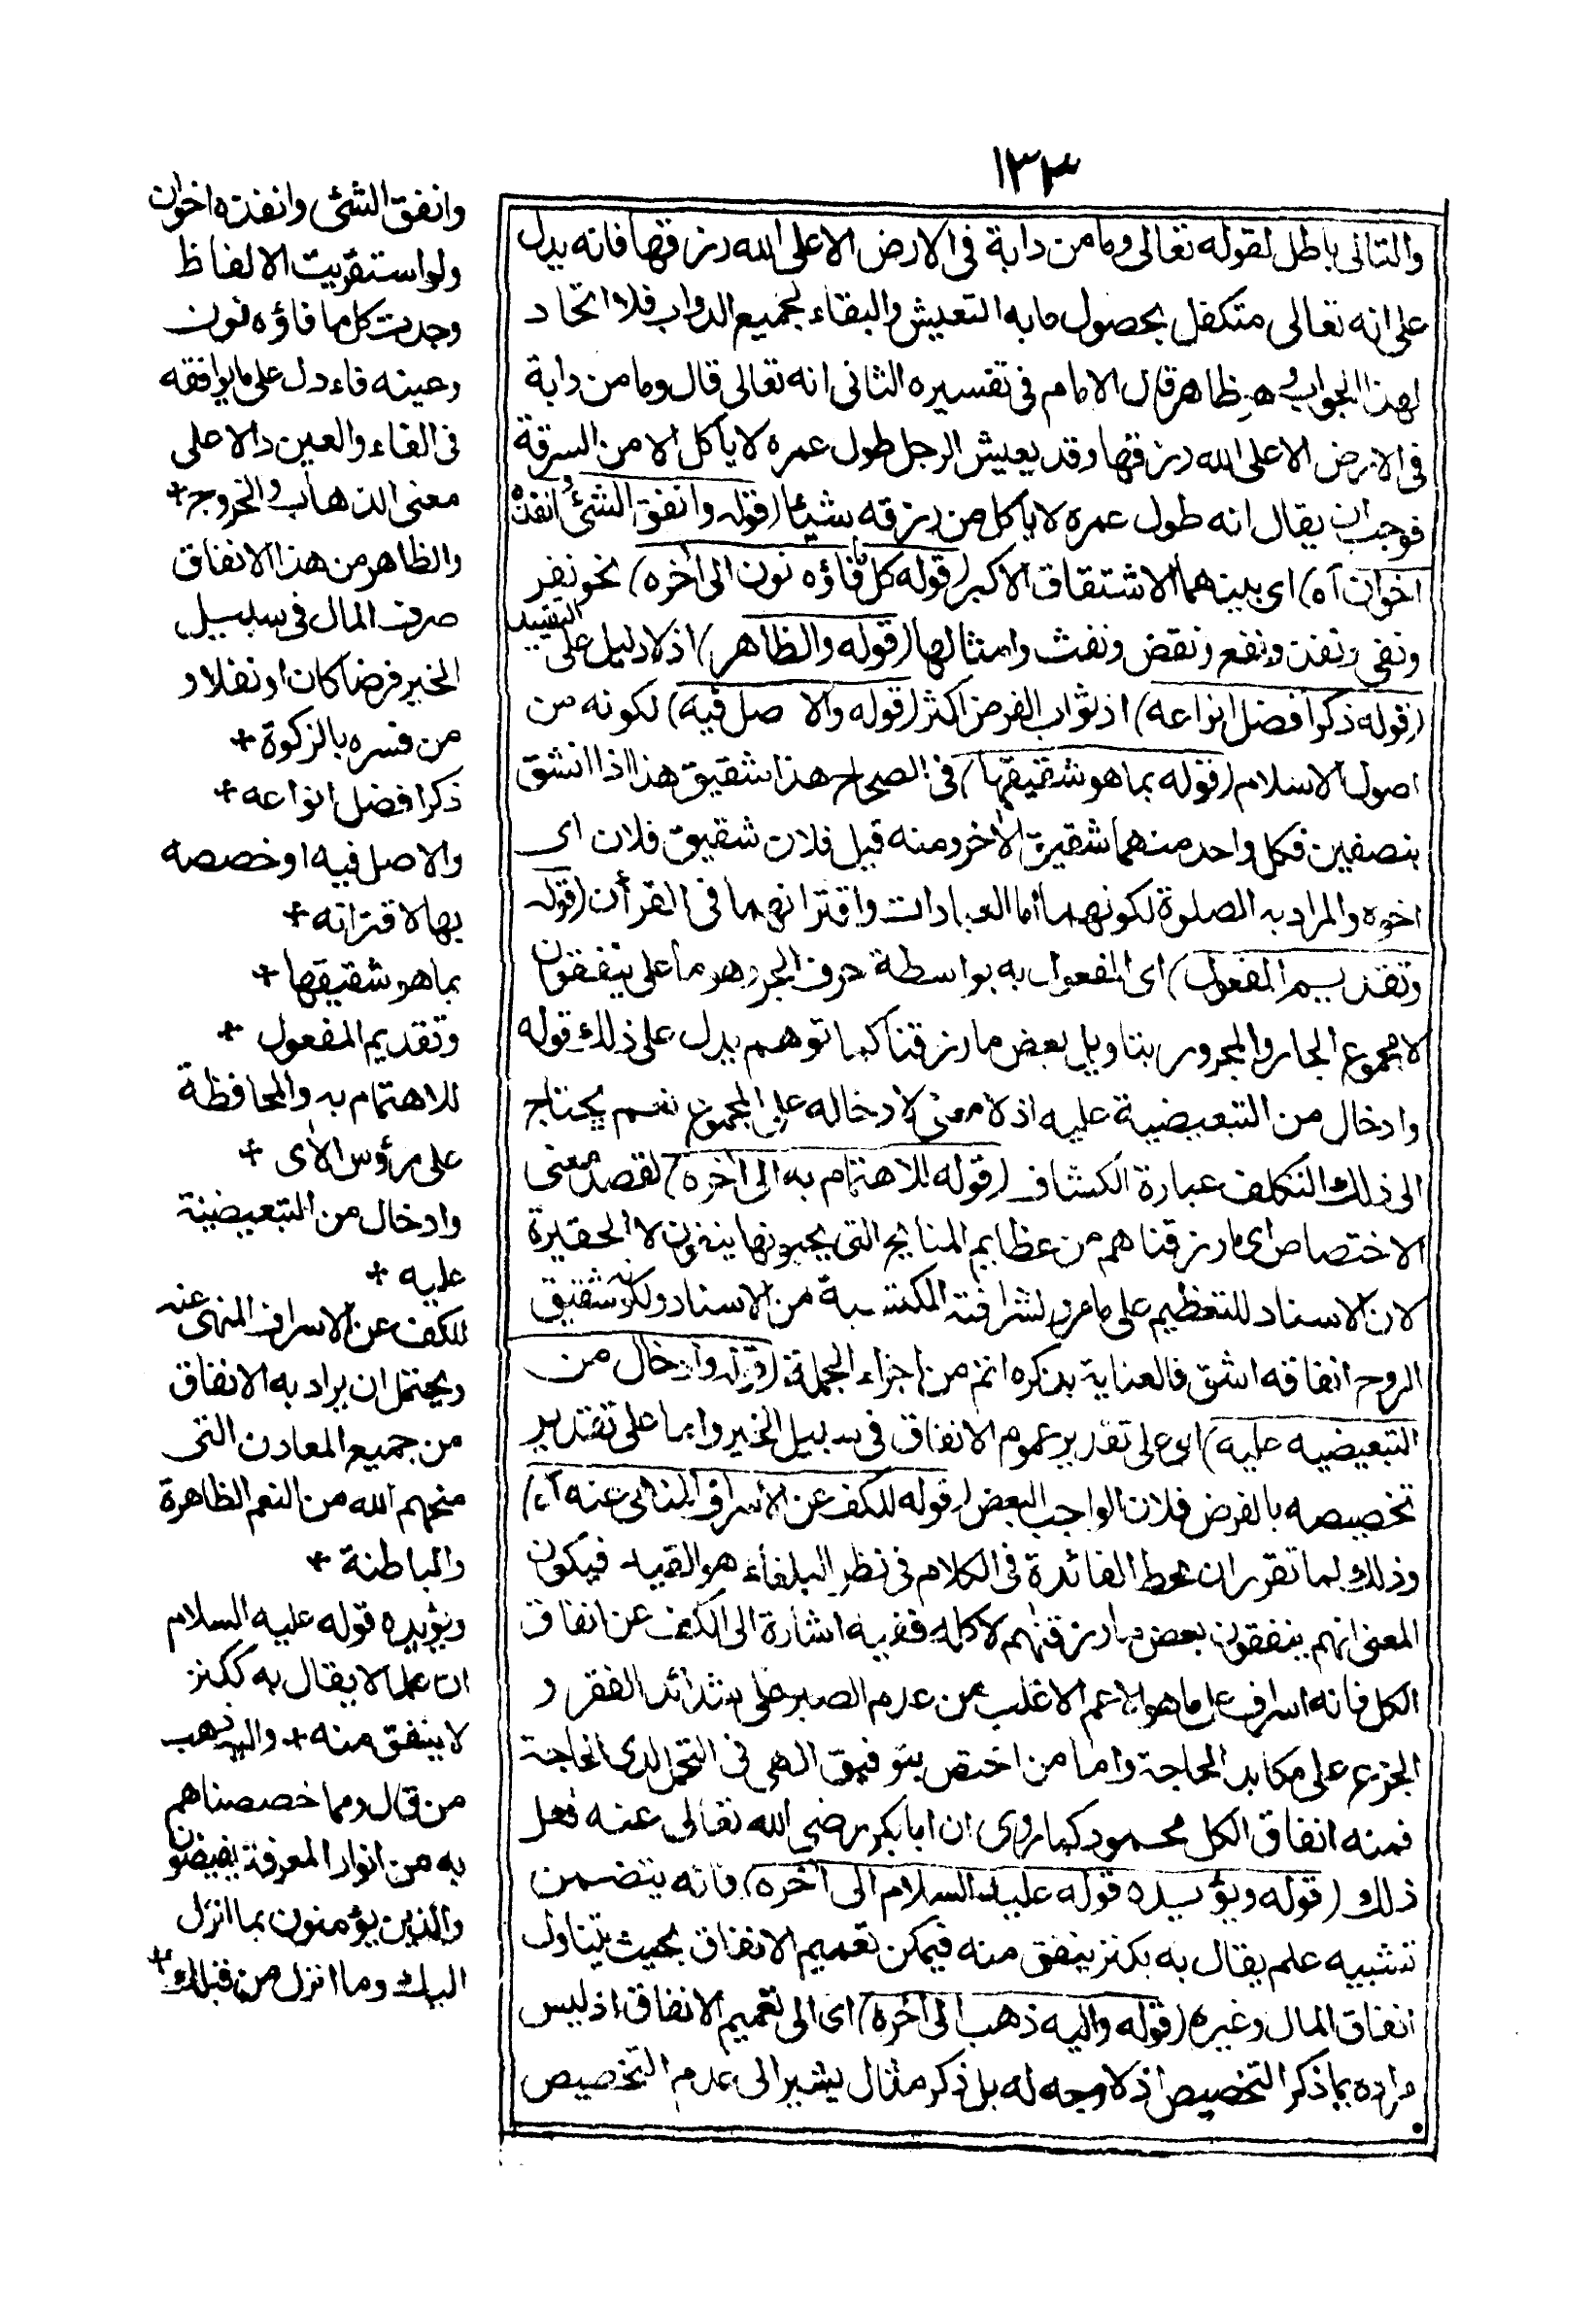 ١٣٣
والتالى باطل لقوله تعالى وما من دابة فى الارض الا على الله رزقها فانه يدل
على انه تعالى متكفل بحصول ما به التعيش والبقاء لجميع الدواب فلا اتحاد
لهذا الجواب وهو ظاهر قال الامام فى تفسيره الثانى انه تعالى قال وما من دابة
فى الارض الا على الله رزقها وقد يعيش الرجل طول عمره لا يأكل الا من السرقة
فوجب ان يقال انه طول عمره لا يأكل من رزقه شيئا (قوله وانفق الشئ وانفذه
اخوان آه) اى بينهما الاشتقاق الاكبر (قوله كل ما فاؤه نون الى آخره) نحو نفر
ونفى ونفذ ونفع ونقض ونفث وامثالها (قوله والظاهر) اذ لا دليل على التقييد
(قوله ذكر افضل انواعه) اذ ثواب الفرض اكثر (قوله والاصل فيه) لكونه من
اصول الاسلام (قوله بما هو شقيقها) فى الصحاح هذا شقيق هذا اذا انشق
بنصفين فكل واحد منهما شقيق الآخر ومنه قيل فلان شقيق فلان اى
اخوه والمراد به الصلوة لكونهما اما العبادات واقترانهما فى القرآن (قوله
وتقديم المفعول) اى المفعول به بواسطة حرف الجر وهو ما على ينفقون
لا مجموع الجار والمجرور بتاويل بعض ما رزقنا كما توهم يدل على ذلك قوله
وادخال من التبعيضية عليه اذ لا معنى لادخاله على المجموع نعم يحتاج
الى ذلك التكلف عبارة الكشاف (قوله للاهتمام به الى آخره) لقصد معنى
الاختصاص اى ما رزقناهم من عظايم المنايح التى يحبونها ينفقون لا الحقيرة
لان الاسناد للتعظيم على ما مر ولشرافته المكتسبة من الاسناد ولكونه شقيق
الروح انفاقه اشق فالعناية بذكره اتم من اجزاء الجملة (قوله وادخال من
التبعيضيه عليه) اى على تقدير عموم الانفاق فى سبيل الخير واما على تقدير
تخصيصه بالفرض فلان الواجب البعض (قوله للكف عن الاسراف المنهى عنه آه)
وذلك لما تقرر ان محط الفائدة فى الكلام فى نظر البلغاء هو القيد فيكون
المعنى انهم ينفقون بعض ما رزقنهم لا كله ففيه اشارة الى الكف عن انفاق
الكل فانه اسراف على ما هو الاعم الاغلب من عدم الصبر على شدائد الفقر و
الجزع على مكابد الحاجة واما من اختص بتوفيق الهى فى التحمل لدى الحاجة
فمنه انفاق الكل محمود كما روى ان ابا بكر رضى الله تعالى عنه فعل
ذلك (قوله ويؤيده قوله عليه السلام الى آخره) فانه يتضمن
تشبيه علم يقال به بكنز ينفق منه فيمكن تعميم الانفاق بحيث يتناول
انفاق المال وغيره (قوله واليه ذهب الى آخره) اى الى تعميم الانفاق اذ ليس
مراده بما ذكر التخصيص اذ لا وجه له بل ذكر مثال يشير الى عدم التخصيص
وانفق الشئ وانفذه اخوان
ولو استقريت الالفاظ
وجدت كل ما فاؤه نون
وعينه فاء دل على ما يوافقه
فى الفاء والعين دالا على
معنى الذهاب والخروج+
والظاهر من هذا الانفاق
صرف المال فى سبيل
الخير فرضا كان او نفلا و
من فسره بالزكوة +
ذكر افضل انواعه +
والاصل فيه او خصصه
بها لاقترانه +
بما هو شقيقها +
وتقديم المفعول +
للاهتمام به والمحافظة
على رؤس الآى +
وادخال من التبعيضية
عليه +
للكف عن الاسراف المنهى عنه
ويحتمل ان يراد به الانفاق
من جميع المعادن التى
منحهم الله من النعم الظاهرة
والباطنة +
ويؤيده قوله عليه السلام
ان علما لا يقال به ككنز
لا ينفق منه + واليه ذهب
من قال ومما خصصناهم
به من انوار المعرفة يفيضون
والذين يؤمنون بما انزل
اليك وما انزل من قبلك +